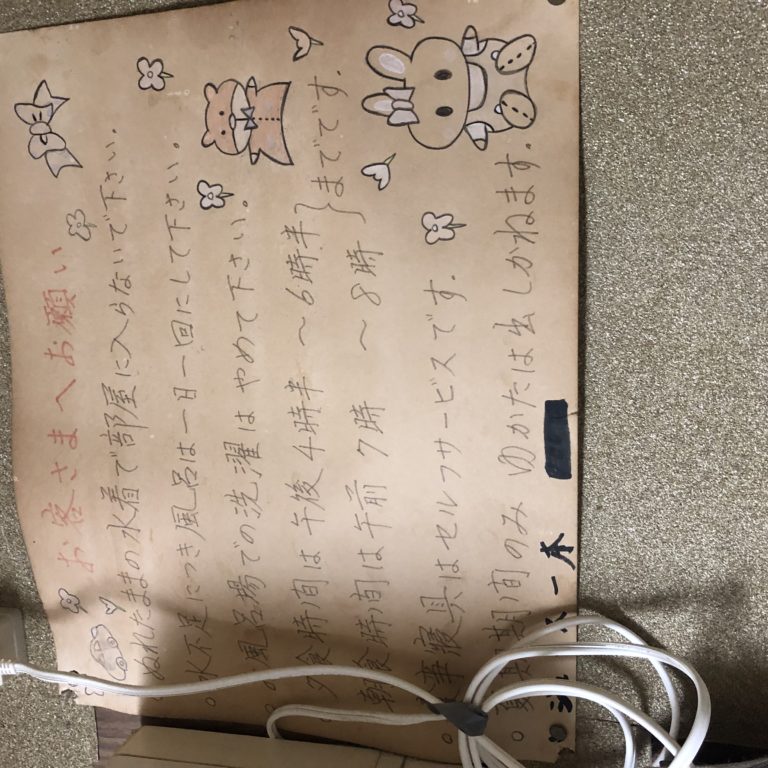 お客さまへお願い
。ぬれたままの水着で部屋に入らないで下さい。
。水不足につき風呂は一日一回にして下さい。
。風呂場での洗濯はやめて下さい。
。夕食時間は午後4時半 〜6時半
。朝食時間は午前7時 〜8時 }までです.
。事寝具はセルフサービスです.
。夏期期間のみ ゆかたは出しかねます.
一本